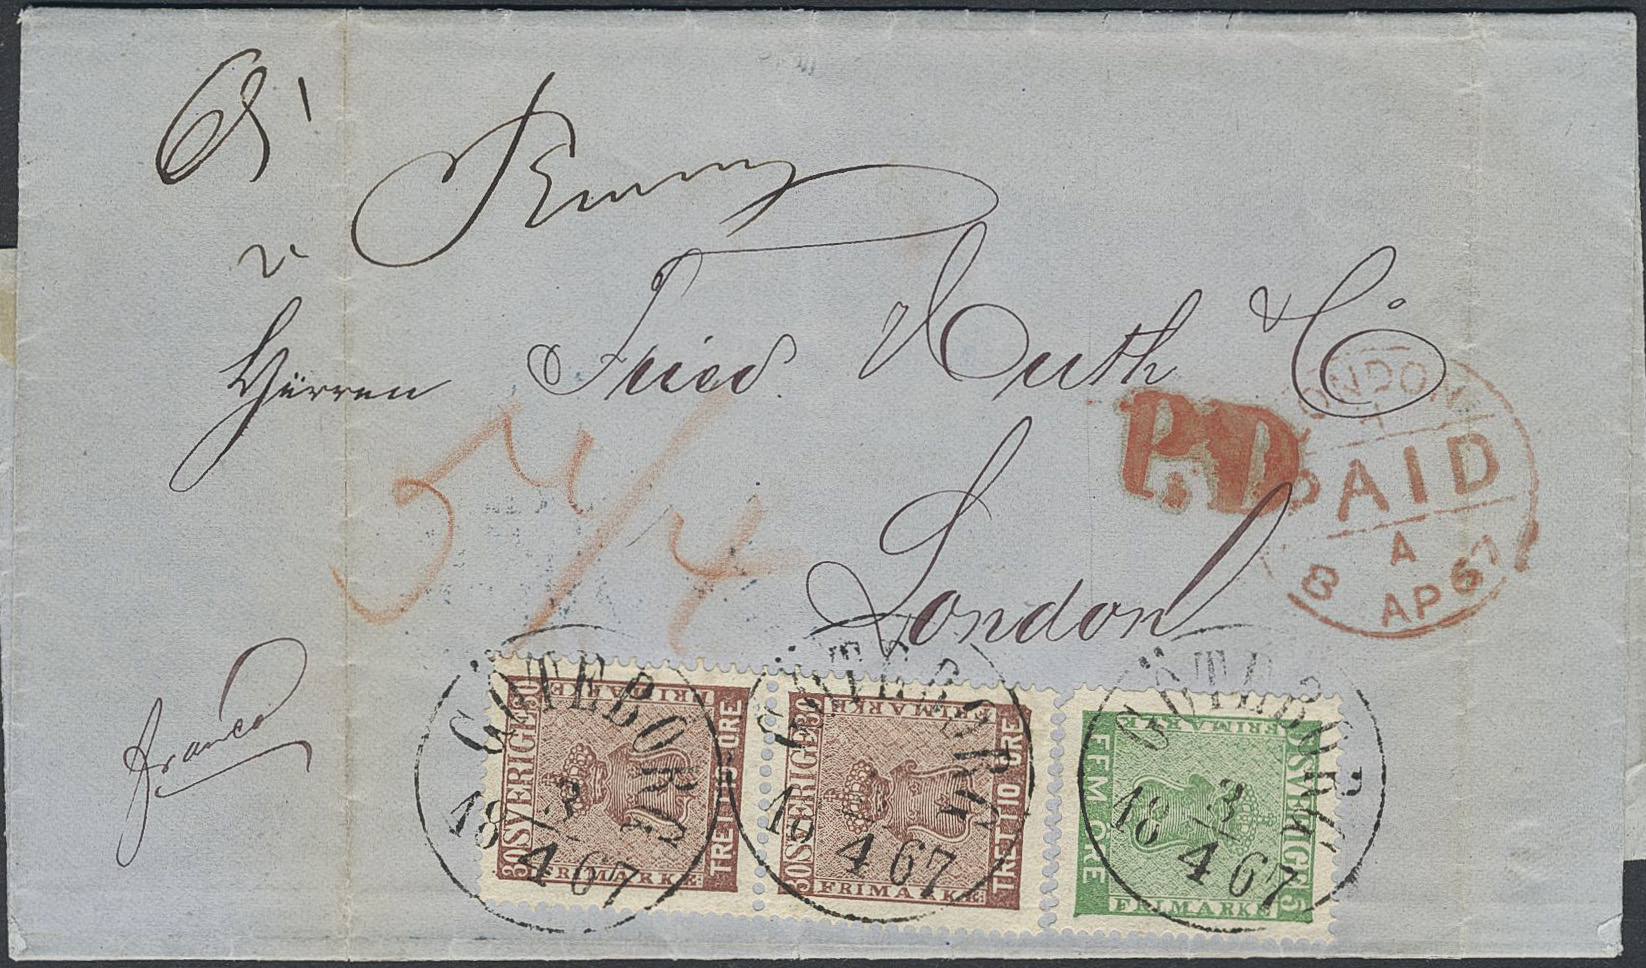 Herren Fried. Huth & Co
London
franco
P.D.
LONDON
PAID
A
8 AP 67
GÖTEBORG
3
18 4 67
SVERIGE
FRIMARKE
30
TRETTIO ÖRE
FRIMARKE
GÖTEBORG
3
18 4 67
SVERIGE
FRIMARKE
30
TRETTIO ÖRE
FRIMARKE
GÖTEBORG
3
18 4 67
SVERIGE
FRIMARKE
5
FEM ÖRE
FRIMARKE